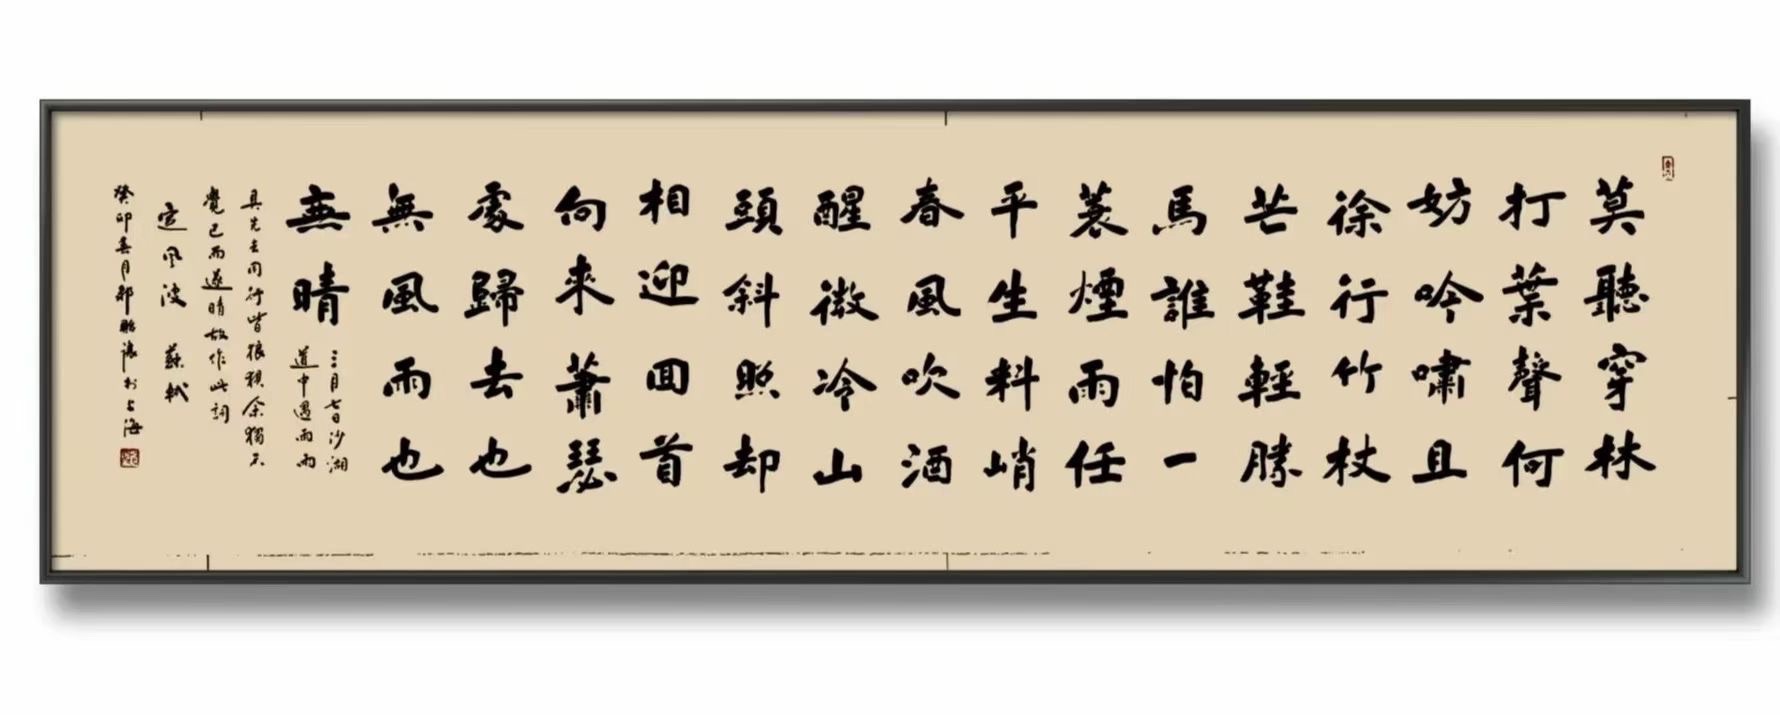 莫聽穿林
打葉聲何
妨吟嘯且
徐行竹杖
芒鞋輕勝
馬誰怕一
蓑煙雨任
平生料峭
春風吹酒
醒微冷山
頭斜照却
相迎回首
向來蕭瑟
處歸去也
無風雨也
無晴
三月七日沙湖
道中遇雨雨
具先去同行皆狼狽余獨不
覺已而遂晴故作此詞
定風波 蘇軾
癸卯春月於上海